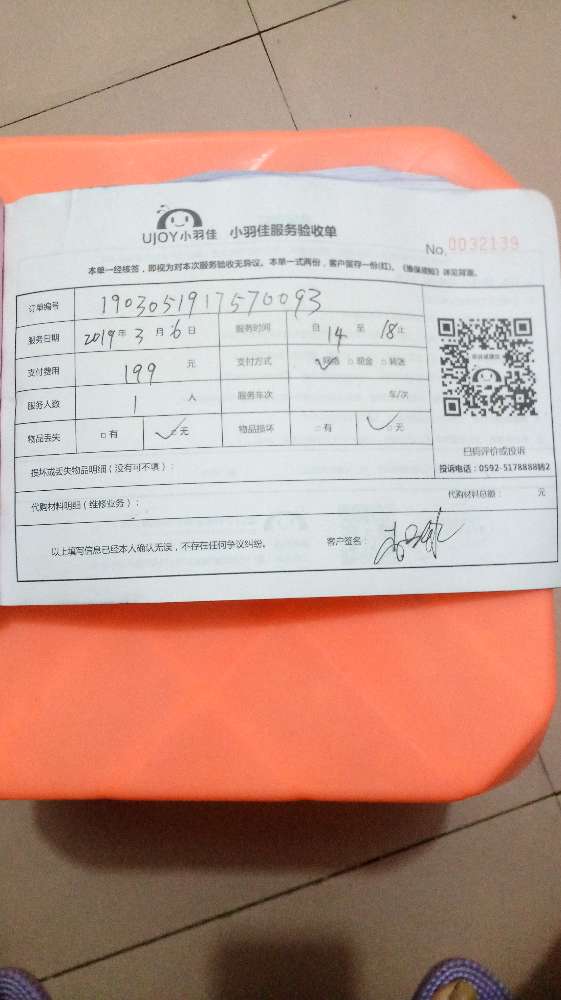 UJOY小羽佳 小羽佳服务验收单
No.0032139
本单一经核签，即视为对本次服务验收无异议。本单一式两份，客户留存一份(红)。《维保须知》详见背面。
订单编号 1903051917570093
服务日期 2019年3月6日 服务时间 自14至18止
支付费用 199元 支付方式 ✓网络 □现金 □转账
服务人数 1人 服务车次 车/次
物品丢失 □有 ✓□无 物品损坏 □有 ✓□无
扫码评价或投诉
投诉电话：0592-5178888转2
损坏或丢失物品明细（没有可不填）：
代购材料明细（维修业务）： 代购材料总额： 元
以上填写信息已经本人确认无误，不存在任何争议纠纷。 客户签名：